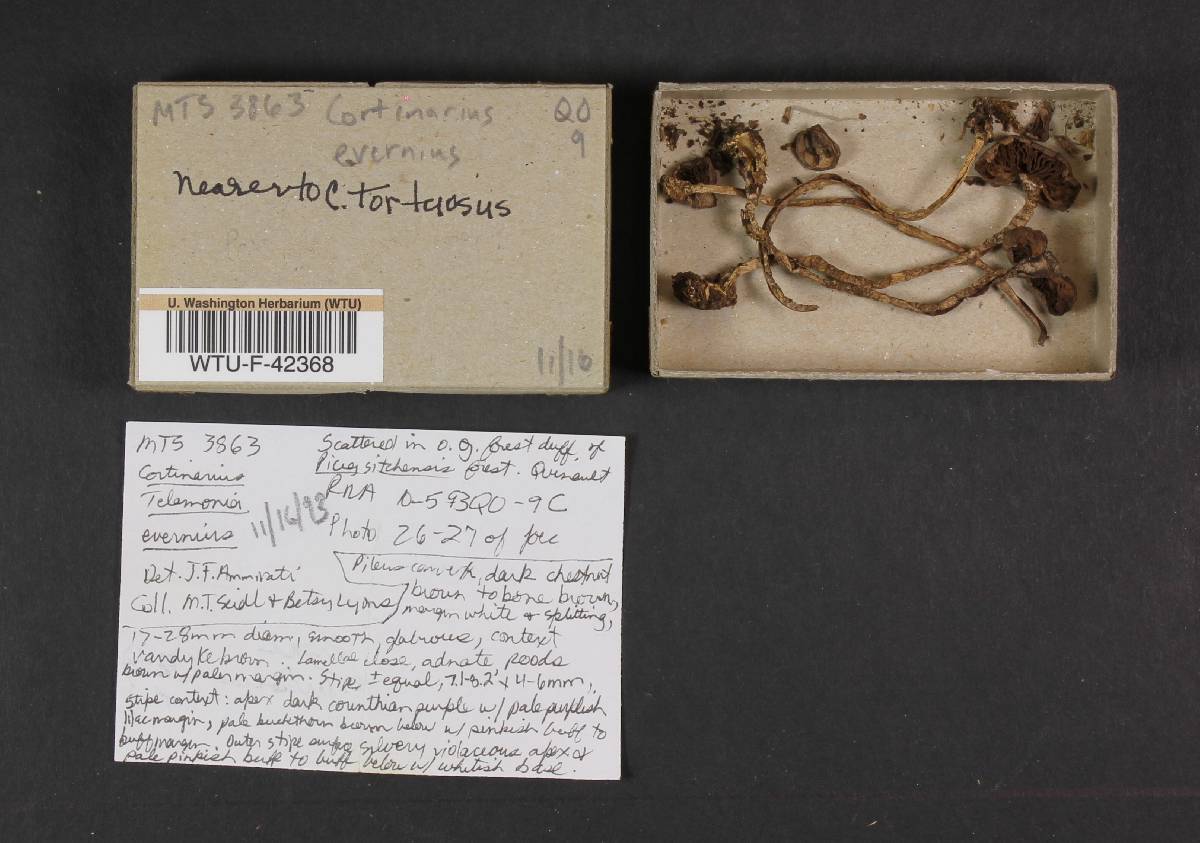 MTS 3863 Cortinarius QO
evernius 9
nearer to C. tortuosus
U. Washington Herbarium (WTU)
WTU-F-42368
11/16
MTS 3863
Cortinarius
Telamonia
evernius
11/16/93
Det. J.F. Ammirati
Coll. M.T. Seidl & Betsy Lyons
Scattered in o.g. forest duff of
Picea sitchensis forest. Quinault
RNA D-593QO-9C
Photo 26-27 of
Pileus convex, dark chestnut
brown to bone brown,
margin white & splitting,
17-28mm diam, smooth, glabrous, context
vandyke brown. Lamellae close, adnate, roods
brown w/ paler margin. Stipe ± equal, 7.1-8.2 x 4-6mm,
stipe context: apex dark corinthian purple w/ pale purplish
lilac margin, pale buckthorn brown below w/ pinkish buff to
buff margin. Outer stipe surface silvery violaceous apex &
pale pinkish buff to buff below w/ whitish base.